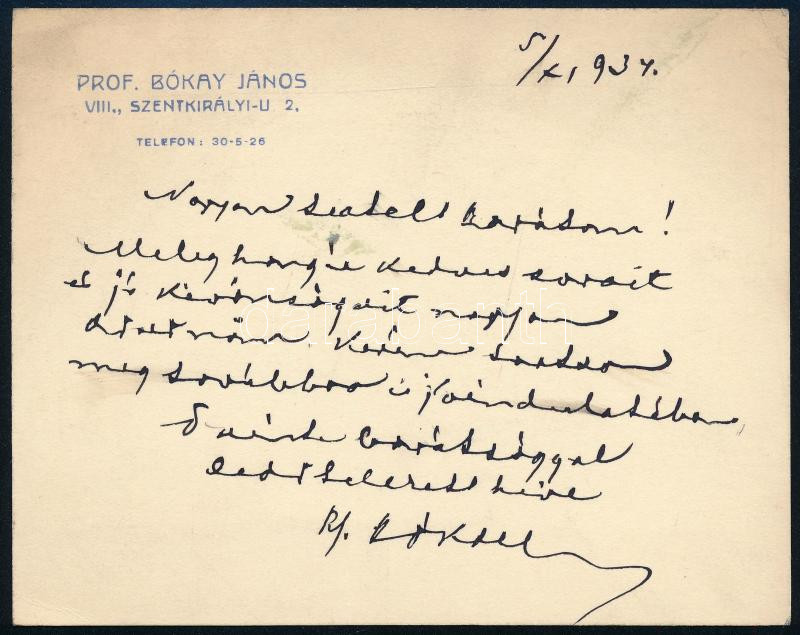 5/XI 934.
PROF. BÓKAY JÁNOS
VIII., SZENTKIRÁLYI-U 2.
TELEFON: 30-5-26
Nagyon tisztelt barátom!
Meleghangú kedves sorait
és jó kívánságait nagyon
Kérem tartson
meg továbbra is jóindulatában
Őszinte barátsággal
híve
Bókay
darabanth